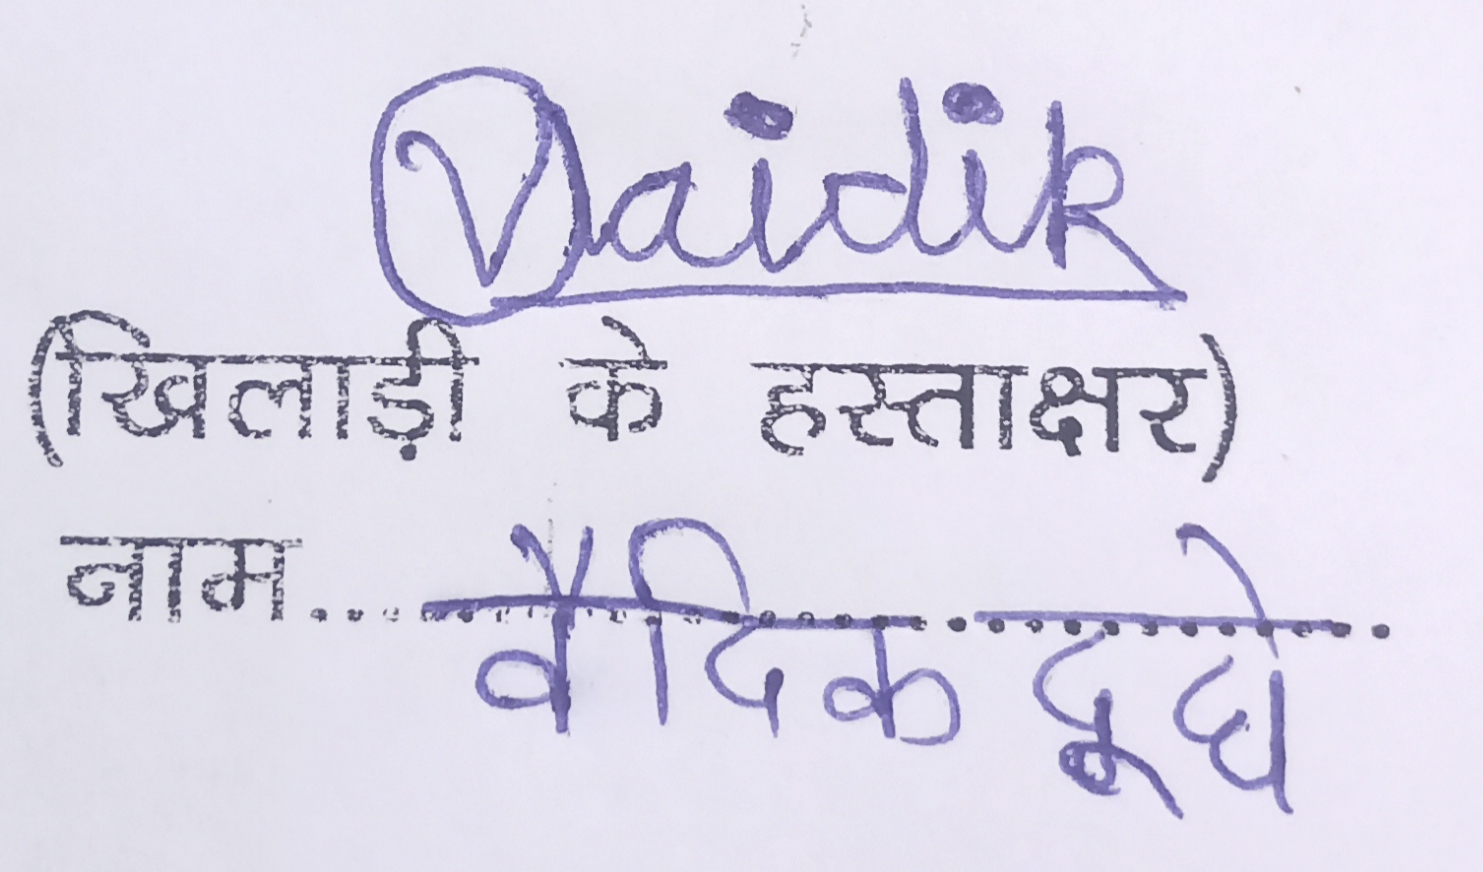 Vaidik
(खिलाड़ी के हस्ताक्षर)
नाम.... वैदिक दूधे